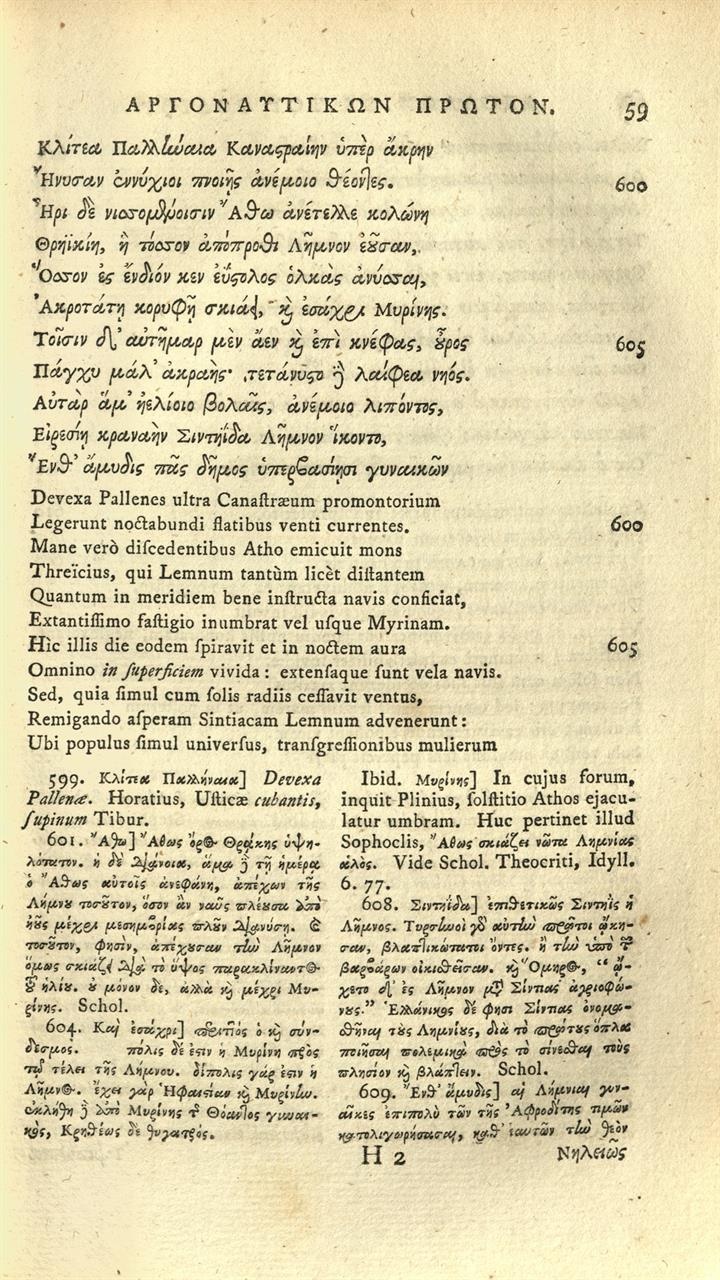 ΑΡΓΟΝΑΥΤΙΚΩΝ ΠΡΩΤΟΝ. 59
Κλίτεα Παλλωύαια Καναςραίην ὑπὲρ ἄκρην
Ἤνυσαν ἐννύχιοι πνοιῆς ἀνέμοιο θέοντες. 600
Ἦρι δὲ νισσομένοισιν Ἄθω ἀνέτελλε κολώνη
Θρηϊκίη, ἣ τόσσον ἀπόπροθι Λῆμνον ἐοῦσαν,
Ὅσσον ἐς ἔνδιόν κεν ἐΰςολος ὁλκὰς ἀνύσσαι,
Ἀκροτάτη κορυφῇ σκιάει, καὶ ἐσάχρι Μυρίνης.
Τοῖσιν δ' αὐτῆμαρ μὲν ἄεν καὶ ἐπὶ κνέφας, οὖρος 605
Πάγχυ μάλ' ἀκραὴς· τετάνυςο δὲ λαίφεα νηός.
Αὐτὰρ ἅμ' ἠελίοιο βολαῖς, ἀνέμοιο λιπόντος,
Εἰρεσίῃ κραναὴν Σιντηΐδα Λῆμνον ἵκοντο,
Ἔνθ' ἄμυδις πᾶς δῆμος ὑπερβασίῃσι γυναικῶν
Devexa Pallenes ultra Canaſtræum promontorium
Legerunt noctabundi flatibus venti currentes. 600
Mane verò diſcedentibus Atho emicuit mons
Threïcius, qui Lemnum tantùm licèt diſtantem
Quantum in meridiem bene inſtructa navis conficiat,
Extantiſſimo faſtigio inumbrat vel uſque Myrinam.
Hìc illis die eodem ſpiravit et in noctem aura 605
Omnino in ſuperficiem vivida: extenſaque ſunt vela navis.
Sed, quia ſimul cum ſolis radiis ceſſavit ventus,
Remigando aſperam Sintiacam Lemnum advenerunt:
Ubi populus ſimul univerſus, tranſgreſſionibus mulierum
599. Κλίτεα Παλλήναια] Devexa
Pallenæ. Horatius, Uſticæ cubantis,
ſupinum Tibur.
601. Ἄθω] Ἄθως ὄρος Θρᾴκης ὑψη-
λότατον. ἡ δὲ διάνοια, ἅμα δὲ τῇ ἡμέρᾳ
ὁ Ἄθως αὐτοῖς ἀνεφάνη, ἀπέχων τῆς
Λήμνου τοσοῦτον, ὅσον ἂν ναῦς πλέουσα ἀπὸ
ἠοῦς μέχρι μεσημβρίας πλοῦν διανύσῃ. καὶ
τοσοῦτον, φησὶν, ἀπέχουσαν τὴν Λῆμνον
ὅμως σκιάζει διὰ τὸ ὕψος παρακλίναντος
τοῦ ἡλίου. οὐ μόνον δὲ, ἀλλὰ καὶ μέχρι Μυ-
ρίνης. Schol.
604. Καὶ ἐσάχρι] περιττὸς ὁ καὶ σύν-
δεσμος. πόλις δέ ἐςιν ἡ Μυρίνη πρὸς
τῷ τέλει τῆς Λήμνου. δίπολις γάρ ἐςιν ἡ
Λῆμνος. ἔχει γὰρ Ἡφαιςίαν καὶ Μυρίναν.
ἐκλήθη δὲ ἀπὸ Μυρίνης τῆς Θόαντος γυναι-
κὸς, Κρηθέως δὲ θυγατρός.
Ibid. Μυρίνης] In cujus forum,
inquit Plinius, ſolſtitio Athos ejacu-
latur umbram. Huc pertinet illud
Sophoclis, Ἄθως σκιάζει νῶτα Λημνίας
ἁλός. Vide Schol. Theocriti, Idyll.
6. 77.
608. Σιντηΐδα] ἐπιθετικῶς Σιντηῒς ἡ
Λῆμνος. Τυρσηνοὶ γὰρ αὐτὴν πρῶτοι ᾤκη-
σαν, βλαπτικώτατοι ὄντες. ἢ τὴν ὑπὸ τῶν
βαρβάρων οἰκισθεῖσαν. καὶ Ὅμηρος, “ ᾤ-
χετο δ' ἐς Λῆμνον μετὰ Σίντιας ἀγριοφώ-
νους.” Ἑλλάνικος δέ φησι Σίντιας ὀνομα-
σθῆναι τοὺς Λημνίους, διὰ τὸ πρώτους ὅπλα
ποιῆσαι πολεμικὰ πρὸς τὸ σίνεσθαι τοὺς
πλησίον καὶ βλάπτειν. Schol.
609. Ἔνθ' ἄμυδις] αἱ Λήμνιαι γυν-
αῖκες ἐπιπολὺ τῶν τῆς Ἀφροδίτης τιμῶν
κατολιγωρήσασαι, καθ' ἑαυτῶν τὴν θεὸν
H 2 Νηλειῶς